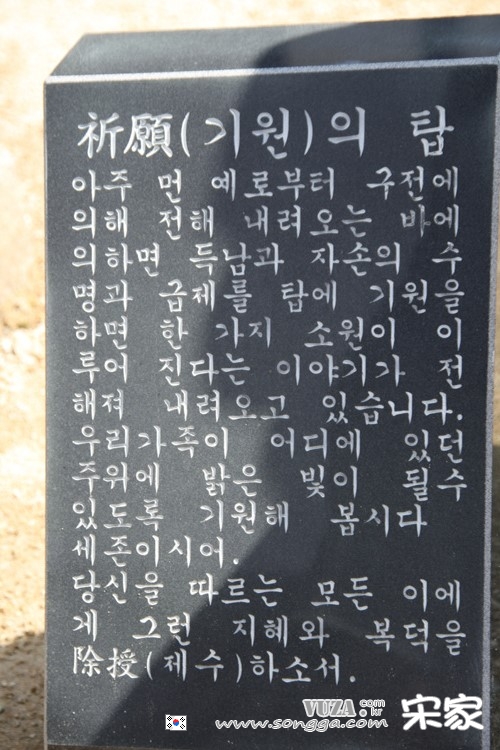 祈願(기원)의 탑
아주 먼 예로부터 구전에
의해 전해 내려오는 바에
의하면 득남과 자손의 수
명과 급제를 탑에 기원을
하면 한 가지 소원이 이
루어 진다는 이야기가 전
해져 내려오고 있습니다.
우리가족이 어디에 있던
주위에 밝은 빛이 될수
있도록 기원해 봅시다
세존이시어.
당신을 따르는 모든 이에
게 그런 지혜와 복덕을
除授(제수)하소서.
VUZA.com.kr
www.songga.com
宋家